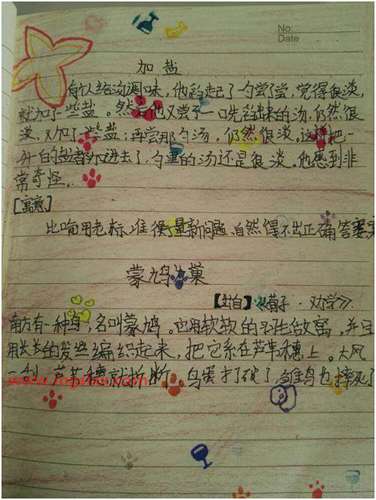 No:
Date
加盐
有人给汤调味，他舀起了一勺尝尝，觉得很淡，
就加了一些盐。然后他又尝了一口先舀出来的汤，仍然很
淡，又加了一些盐；再尝那勺汤，仍然很淡，这样把一
升白的盐都加进去了，勺里的汤还是很淡，他感到非
常奇怪。
【寓意】
比喻用老标准衡量新问题，自然得不出正确答案
蒙鸠为巢
【出自】《荀子·劝学》
南方有一种鸟，名叫蒙鸠。它用软软的羽毛做窝，并且
用长长的发丝编织起来，把它系在芦苇穗上。大风
一刮，芦苇穗就折断，鸟蛋打破了，雏鸟也摔死了